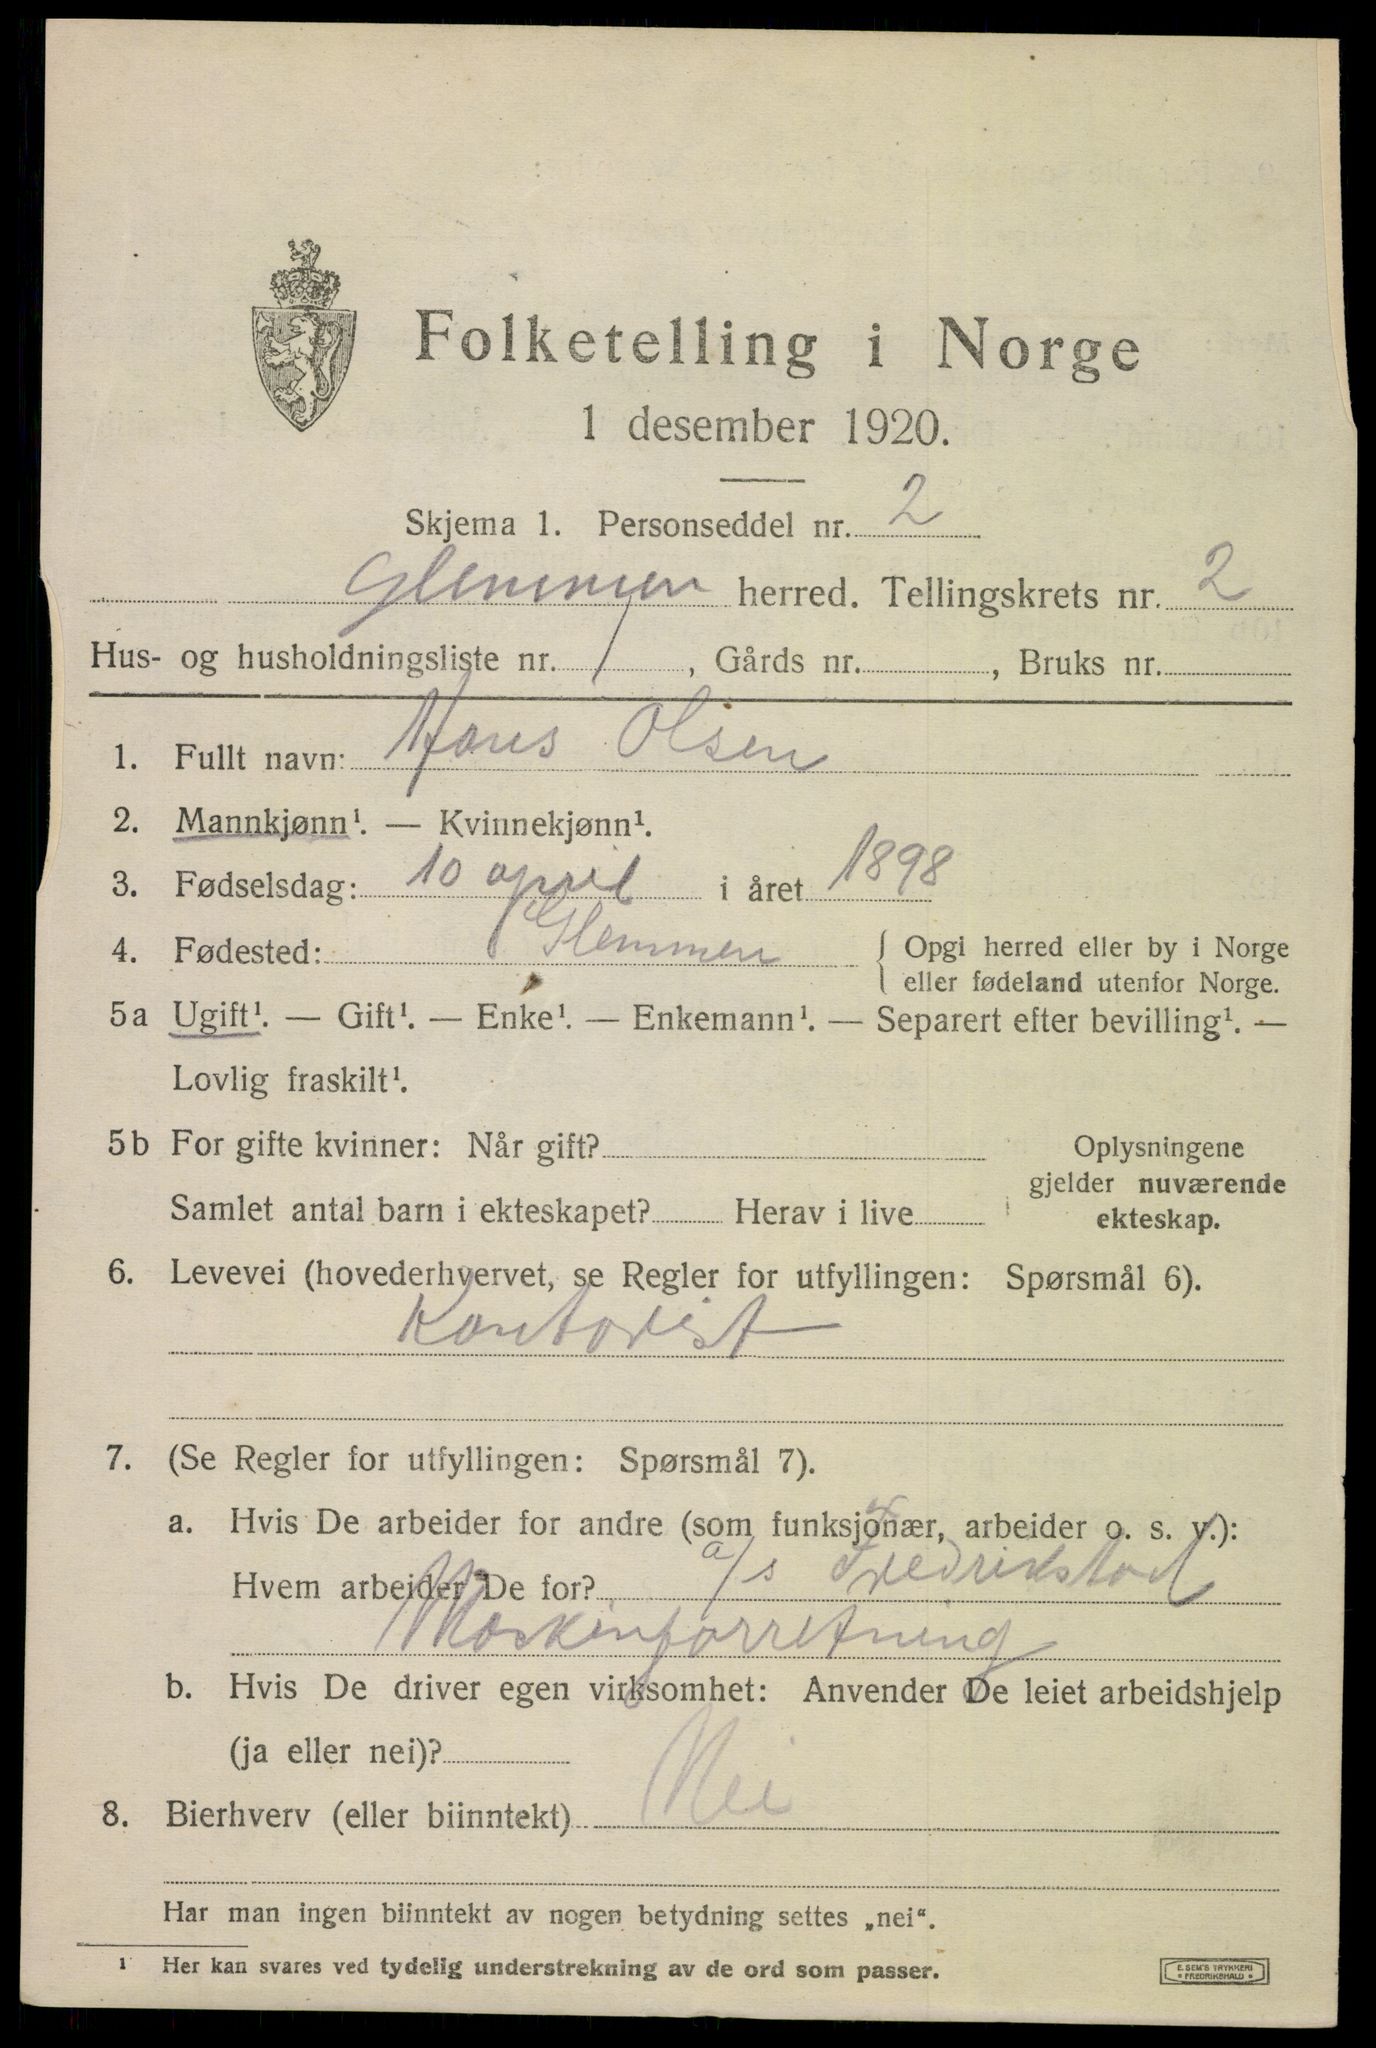 Folketelling i Norge
1 desember 1920.
Skjema 1. Personseddel nr. 2
Glemmen herred. Tellingskrets nr. 2
Hus- og husholdningsliste nr. 1, Gårds nr. , Bruks nr.
1. Fullt navn: Hans Olsen
2. Mannkjønn¹. — Kvinnekjønn¹.
3. Fødselsdag: 10 april i året 1898
4. Fødested: Glemmen { Opgi herred eller by i Norge
{ eller fødeland utenfor Norge.
5a Ugift¹. — Gift¹. — Enke¹. — Enkemann¹. — Separert efter bevilling¹. —
Lovlig fraskilt¹.
5b For gifte kvinner: Når gift?
Samlet antal barn i ekteskapet? Herav i live
Oplysningene
gjelder nuværende
ekteskap.
6. Levevei (hovederhvervet, se Regler for utfyllingen: Spørsmål 6).
Kontorist
7. (Se Regler for utfyllingen: Spørsmål 7).
a. Hvis De arbeider for andre (som funksjonær, arbeider o. s. v.):
Hvem arbeider De for? a/s Fredrikstad
Maskinforretning
b. Hvis De driver egen virksomhet: Anvender De leiet arbeidshjelp
(ja eller nei)?
8. Bierhverv (eller biinntekt) Nei
Har man ingen biinntekt av nogen betydning settes „nei“.
1 Her kan svares ved tydelig understrekning av de ord som passer.
E. SEM'S TRYKKERI
* FREDRIKSHALD *